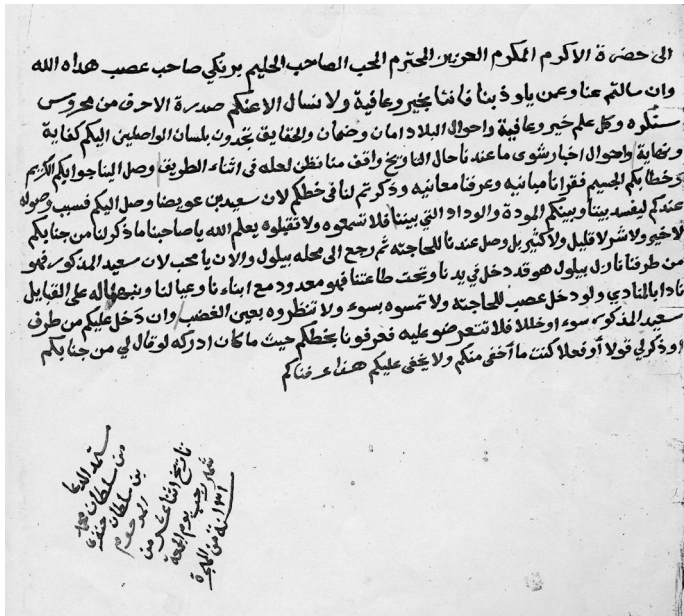 الى حضرة الاكرم المكرم العزيز المحترم المحب الصاحب الحليم برنكي صاحب عصب هداه الله
وان سالتم عنا وعمن ياوذ بنا فاننا بخير وعافية ولا نسال الا عنكم صدرة الاحرف من محروس
ستكره وكل علم خير وعافية واحوال البلاد امان وضمان والحقايق تجدون بلسان الواصلين اليكم كفاية
ونهاية واحوال اخبار شوى ما عندنا حال التاريخ واقف منا نظن لعله فى اثناء الطريق وصل الينا جوابكم الكريم
وخطابكم الجسيم فقرانا مبانيه وعرفنا معانيه وذكرتم لنا فى خطكم لان سعيد بن عويضا وصل اليكم فسبب وصوله
عندكم ليفسد بيننا وبينكم المودة والوداد التي بيننا فلا تسمعوه ولا تقبلوه يعلم الله يا صاحبنا ما ذكر لنا من جنابكم
لا خير ولا شر لا قليل ولا كثير بل وصل عندنا للحاجته ثم رجع الى محله بيلول والان يا محب لان سعيد المذكور فهو
من طرفنا نازل بيلول هو قد دخل في يدنا وتحت طاعتنا فهو معدود مع ابناءنا وعيالنا وينبهها له على القبايل
نادا بالمنادي ولو دخل عصب للحاجته ولا تمسوه بسوء ولا تنظروه بعين الغضب وان دخل عليكم من طرف
سعيد المذكور سوء او خللا فلا تتعرضو عليه فعرفونا بخطكم حيث ما كان ادركه لو قال لي من جنابكم
او ذكر لي قولا أو فعلا كنت ما أخفى منكم ولا يخفى عليكم هذا عرفناكم
مستمد الدعا
من سلطان محمد
بن سلطان حنفرا
المرحوم
تاريخ اثنا عشر من
شهر رجب يوم الجمعة
سنة من الهجرة